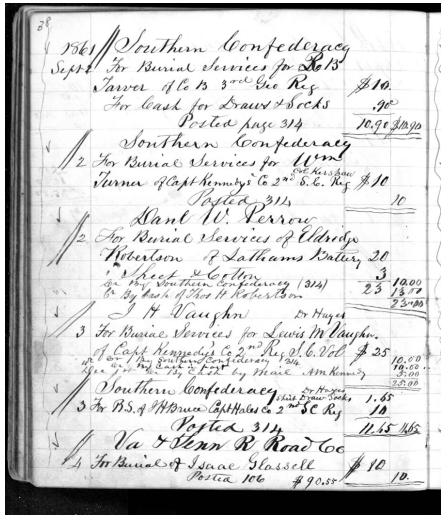 38
1861 Southern Confederacy
Sept 2 For Burial Services for B
Tarver of Co B 3rd Geo Reg $10.
For Cash for Draws & Socks .90
Posted page 314 10.90 $10.90
Southern Confederacy
2 For Burial Services for Wm
Col Kershaw
Turner of Capt Kennedys Co 2nd S.C. Reg $10
Posted 314 10
Danl W. Perrow
2 For Burial Services of Eldridge
Robertson of Lathams Battery 20
" Sheet & Cotton 3
Cr By Southern Confederacy (314) 23 10.00
Cr By Cash of Thos H Robertson 13.00
23.00
J H Vaughn Dr Hayes
3 For Burial Services for Lewis M Vaughn
of Capt Kennedys Co 2nd Reg S.C. Vol $25
Cr By Southern Confederacy 314 10.00
By Cash 10.00
By Cash by mail AM Kenney 5.00
25.00
Southern Confederacy Dr Hayes
Shirt Draw Socks 1.65
3 For B.S. of P H Bruce Capt Hales Co 2nd SC Reg 10
Posted 314 11.65 11.65
Va & Tenn R Road Co
4 For Burial of Isaac Glassell $10
Posted 106 $90.55 10.